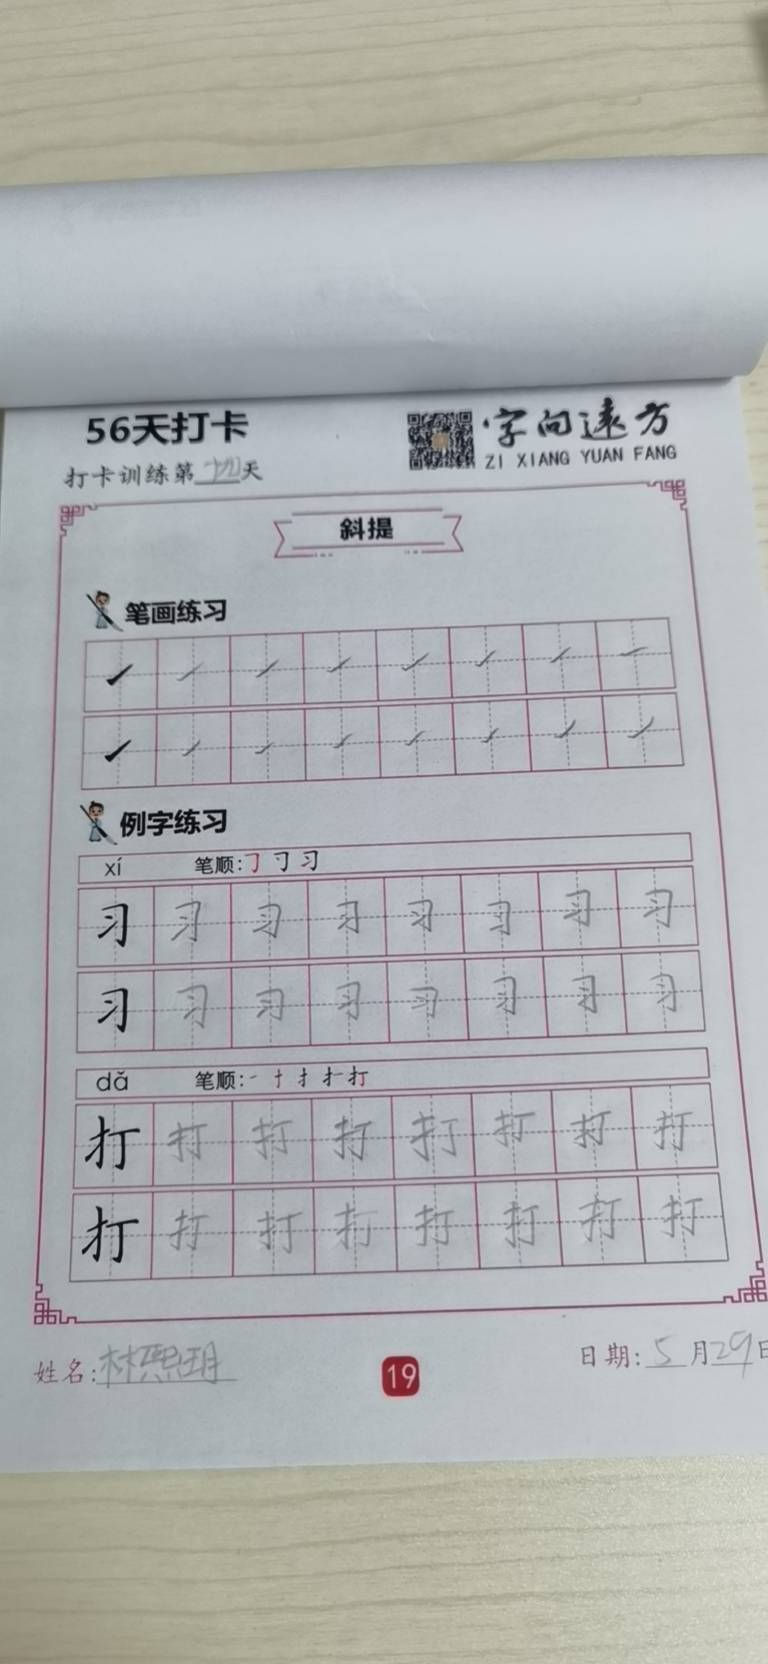 56天打卡
字向远方
ZI XIANG YUAN FANG
打卡训练第 天
斜提
笔画练习
例字练习
xí 笔顺:㇆ 习
习 习 习 习 习 习 习 习
习 习 习 习 习 习 习 习
dǎ 笔顺:一 十 扌 打
打 打 打 打 打 打 打 打
打 打 打 打 打 打 打 打
姓名:林熙玥
19
日期:5月29日